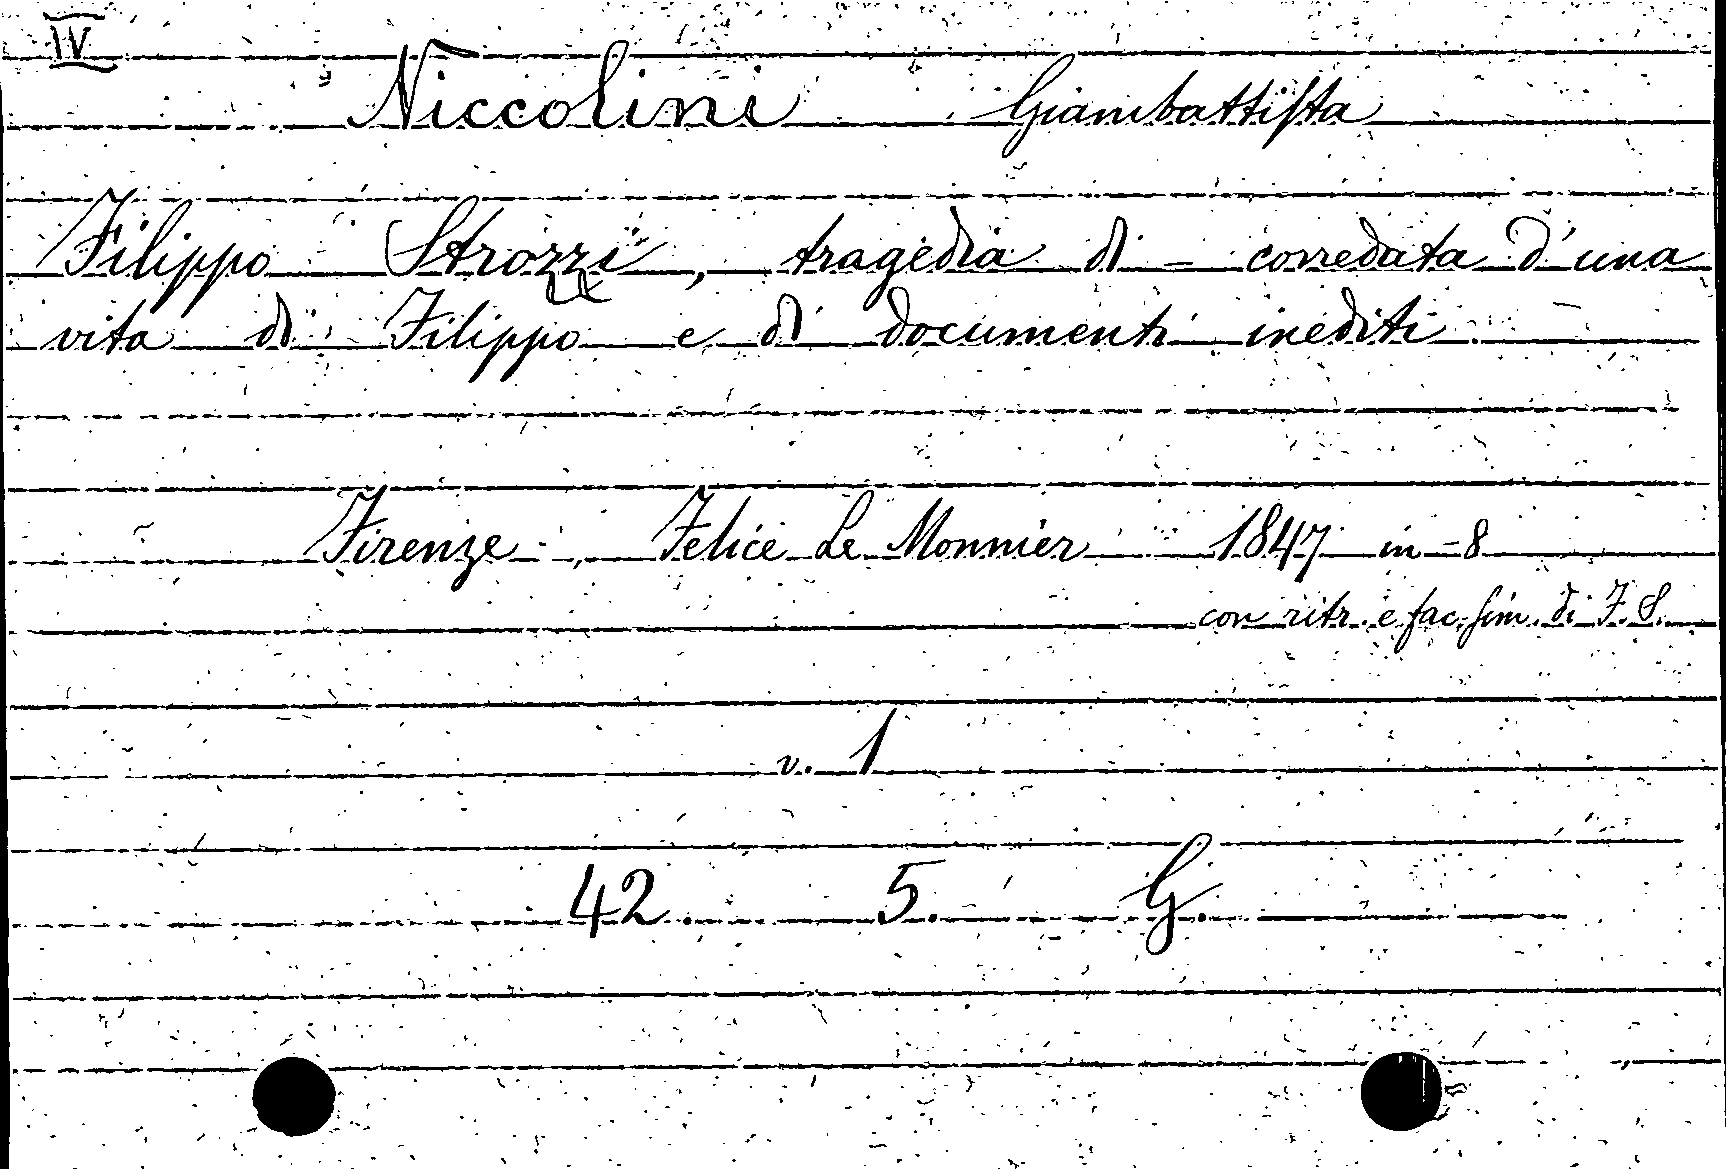 IV
Niccolini Giambattista
Filippo Strozzi, tragedia di - corredata d'una
vita di Filippo e di documenti inediti
Firenze, Felice Le Monnier 1847 in-8
con ritr. e fac. sim. di F. S.
v. 1
42. 5. G.